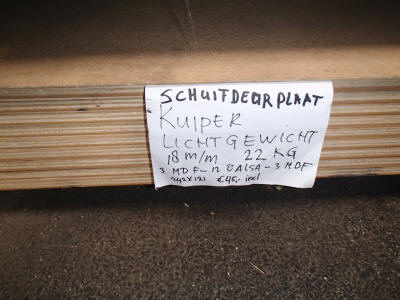 SCHUIFDEURPLAAT
KUIPER
LICHTGEWICHT
18 m/m 22 KG
3 MDF-12 BALSA-3 MDF
242x121 €45,- incl